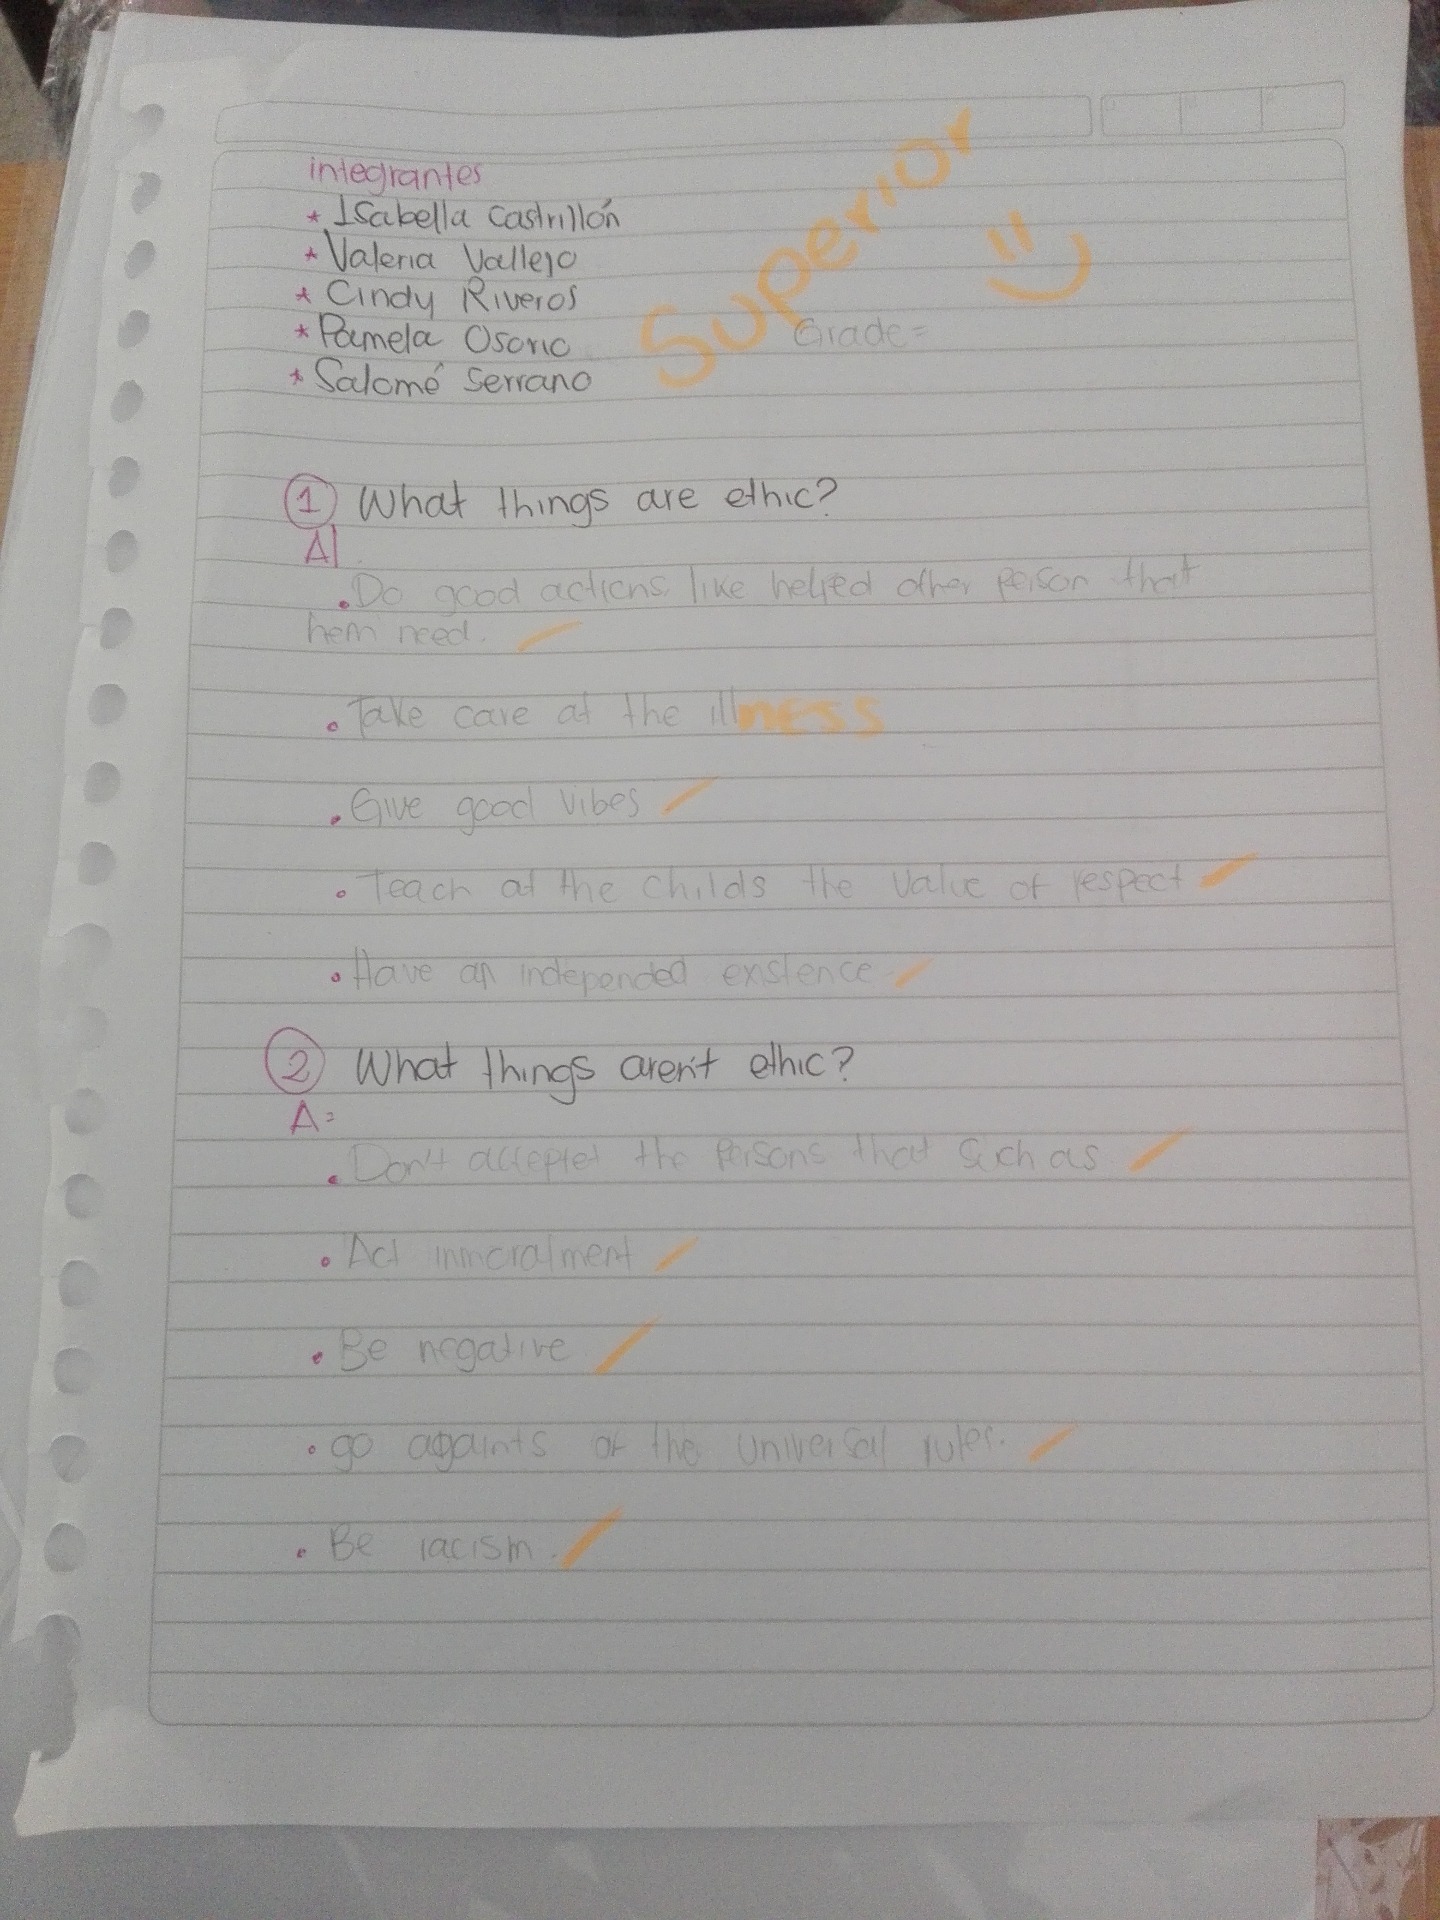 integrantes
* Isabella Castrillón
* Valeria Vallejo
* Cindy Riveros
* Pamela Osorio
* Salomé Serrano
Superior
Grade=
1 What things are ethic?
A|
. Do good actions, like helped other person that
hem need.
. Take care at the illness
. Give good vibes
. Teach at the childs the value of respect
. Have an independed existence
2 What things aren't ethic?
A=
. Don't acceptet the persons that such as
. Act inmoralment
. Be negative
. go againts of the universal rules.
. Be racism.